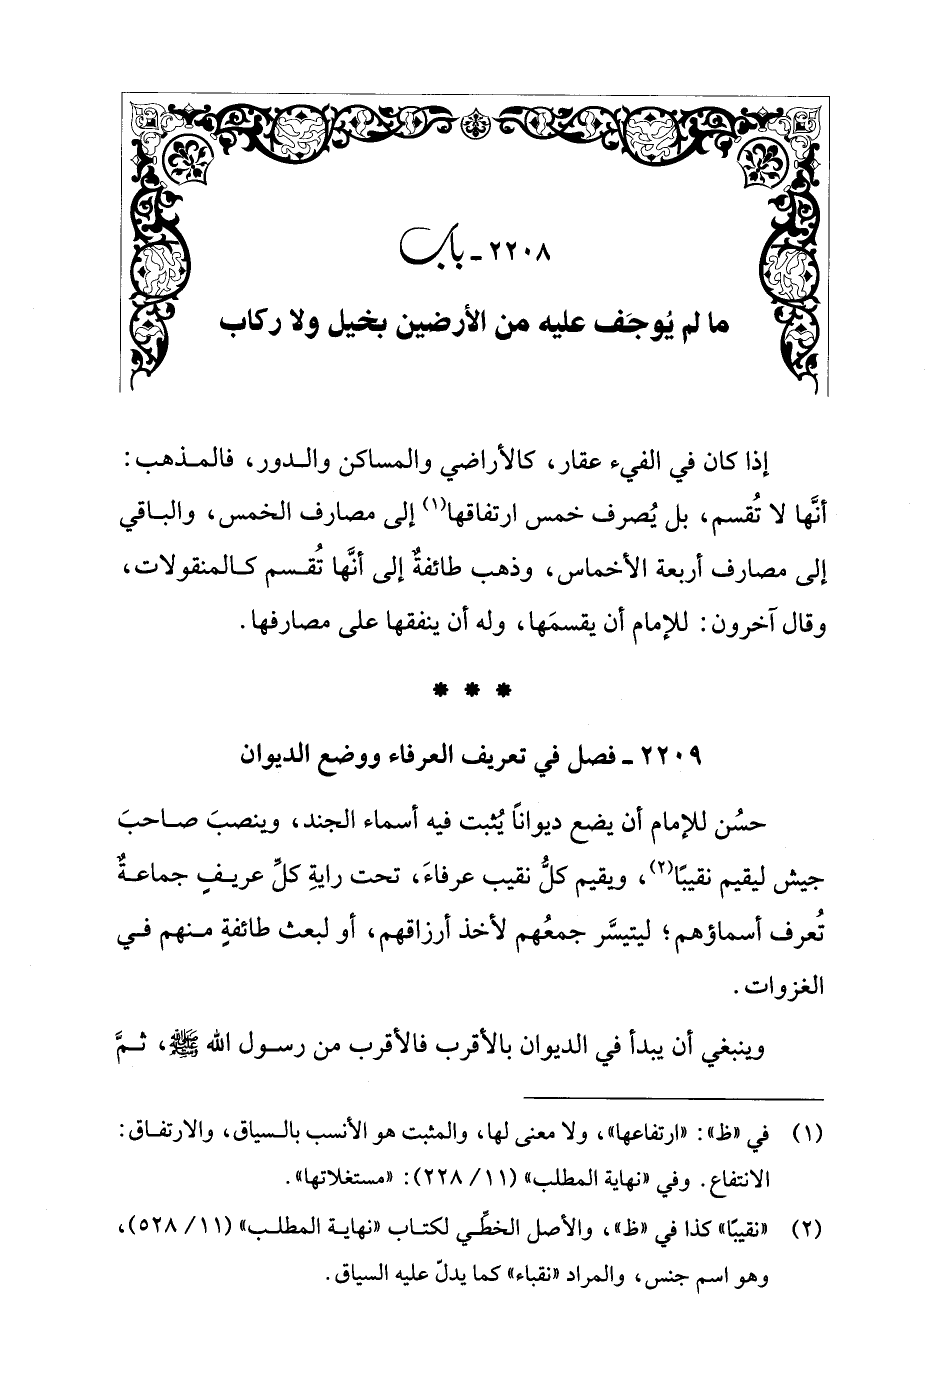 ٢٢٠٨ - باب
ما لم يُوجَف عليه من الأرضين بخيل ولا ركاب
إذا كان في الفيء عقار، كالأراضي والمساكن والدور، فالمذهب:
أنَّها لا تُقسم، بل يُصرف خمس ارتفاقها(١) إلى مصارف الخمس، والباقي
إلى مصارف أربعة الأخماس، وذهب طائفةٌ إلى أنَّها تُقسم كالمنقولات،
وقال آخرون: للإمام أن يقسمَها، وله أن ينفقها على مصارفها.
* * *
٢٢٠٩ - فصل في تعريف العرفاء ووضع الديوان
حسُن للإمام أن يضع ديواناً يُثبت فيه أسماء الجند، وينصبَ صاحبَ
جيش ليقيم نقيبًا(٢)، ويقيم كلُّ نقيب عرفاءَ، تحت رايةِ كلِّ عريفٍ جماعةٌ
تُعرف أسماؤهم؛ ليتيسَّر جمعُهم لأخذ أرزاقهم، أو لبعث طائفةٍ منهم في
الغزوات.
وينبغي أن يبدأ في الديوان بالأقرب فالأقرب من رسول الله ﷺ، ثمَّ
(١) في «ظ»: «ارتفاعها»، ولا معنى لها، والمثبت هو الأنسب بالسياق، والارتفاق:
الانتفاع. وفي «نهاية المطلب» (١١/ ٢٢٨): «مستغلاتها».
(٢) «نقيبًا» كذا في «ظ»، والأصل الخطِّي لكتاب «نهاية المطلب» (١١/ ٥٢٨)،
وهو اسم جنس، والمراد «نقباء» كما يدلّ عليه السياق.